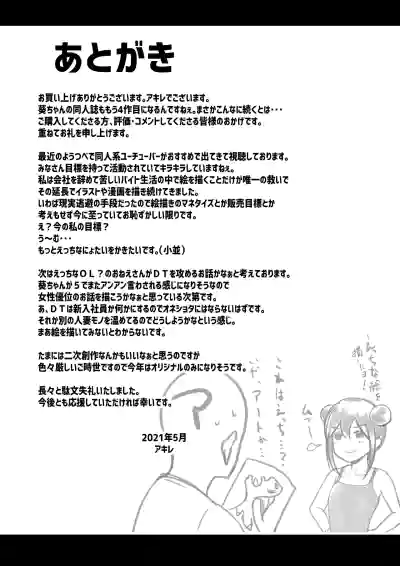 あとがき
お買い上げありがとうございます。アキレでございます。
葵ちゃんの同人誌ももう4作目になるんですねぇ。まさかこんなに続くとは・・・
ご購入してくださる方、評価・コメントしてくださる皆様のおかげです。
重ねてお礼を申し上げます。
最近のようつべで同人系ユーチューバーがおすすめで出てきて視聴しております。
みなさん目標を持って活動されていてキラキラしていますねぇ。
私は会社を辞めて苦しいバイト生活の中で絵を描くことだけが唯一の救いで
その延長でイラストや漫画を描き続けてきました。
いわば現実逃避の手段だったので絵描きのマネタイズとか販売目標とか
考えもせず今に至っていてお恥ずかしい限りです。
え?今の私の目標?
う~む・・・
もっとえっちなにょたいをかきたいです。(小並)
次はえっちなOL?のおねえさんがDTを攻めるお話かなぁと考えております。
葵ちゃんが5でまたアンアン言わされる感じになりそうなので
女性優位のお話を描こうかなぁと思っている次第です。
あ、DTは新入社員か何かにするのでオネショタにはならないはずです。
それか別の人妻モノを温めてるのでどうしようかなという感じ。
まあ絵を描いてみないとわからないです。
たまには二次創作なんかもいいなぁと思うのですが
色々厳しいご時世ですので今年はオリジナルのみになりそうです。
長々と駄文失礼いたしました。
今後とも応援していただければ幸いです。
2021年5月
アキレ
えっちな絵を
ムッー
これはえっち…?
いや、アートか…
?